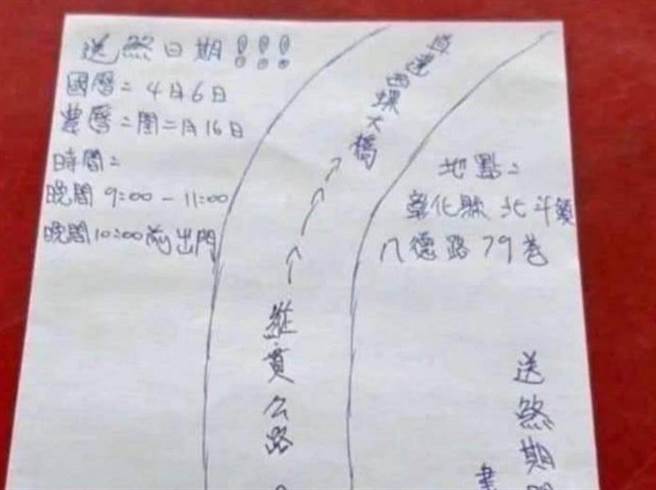 送煞日期!!!
國曆：4月6日
農曆：閏二月16日
時間：
晚間 9:00 - 11:00
晚間10:00前出門
直達西螺大橋
縱貫公路
地點：
彰化縣 北斗鎮
八德路 79巷
送煞期間